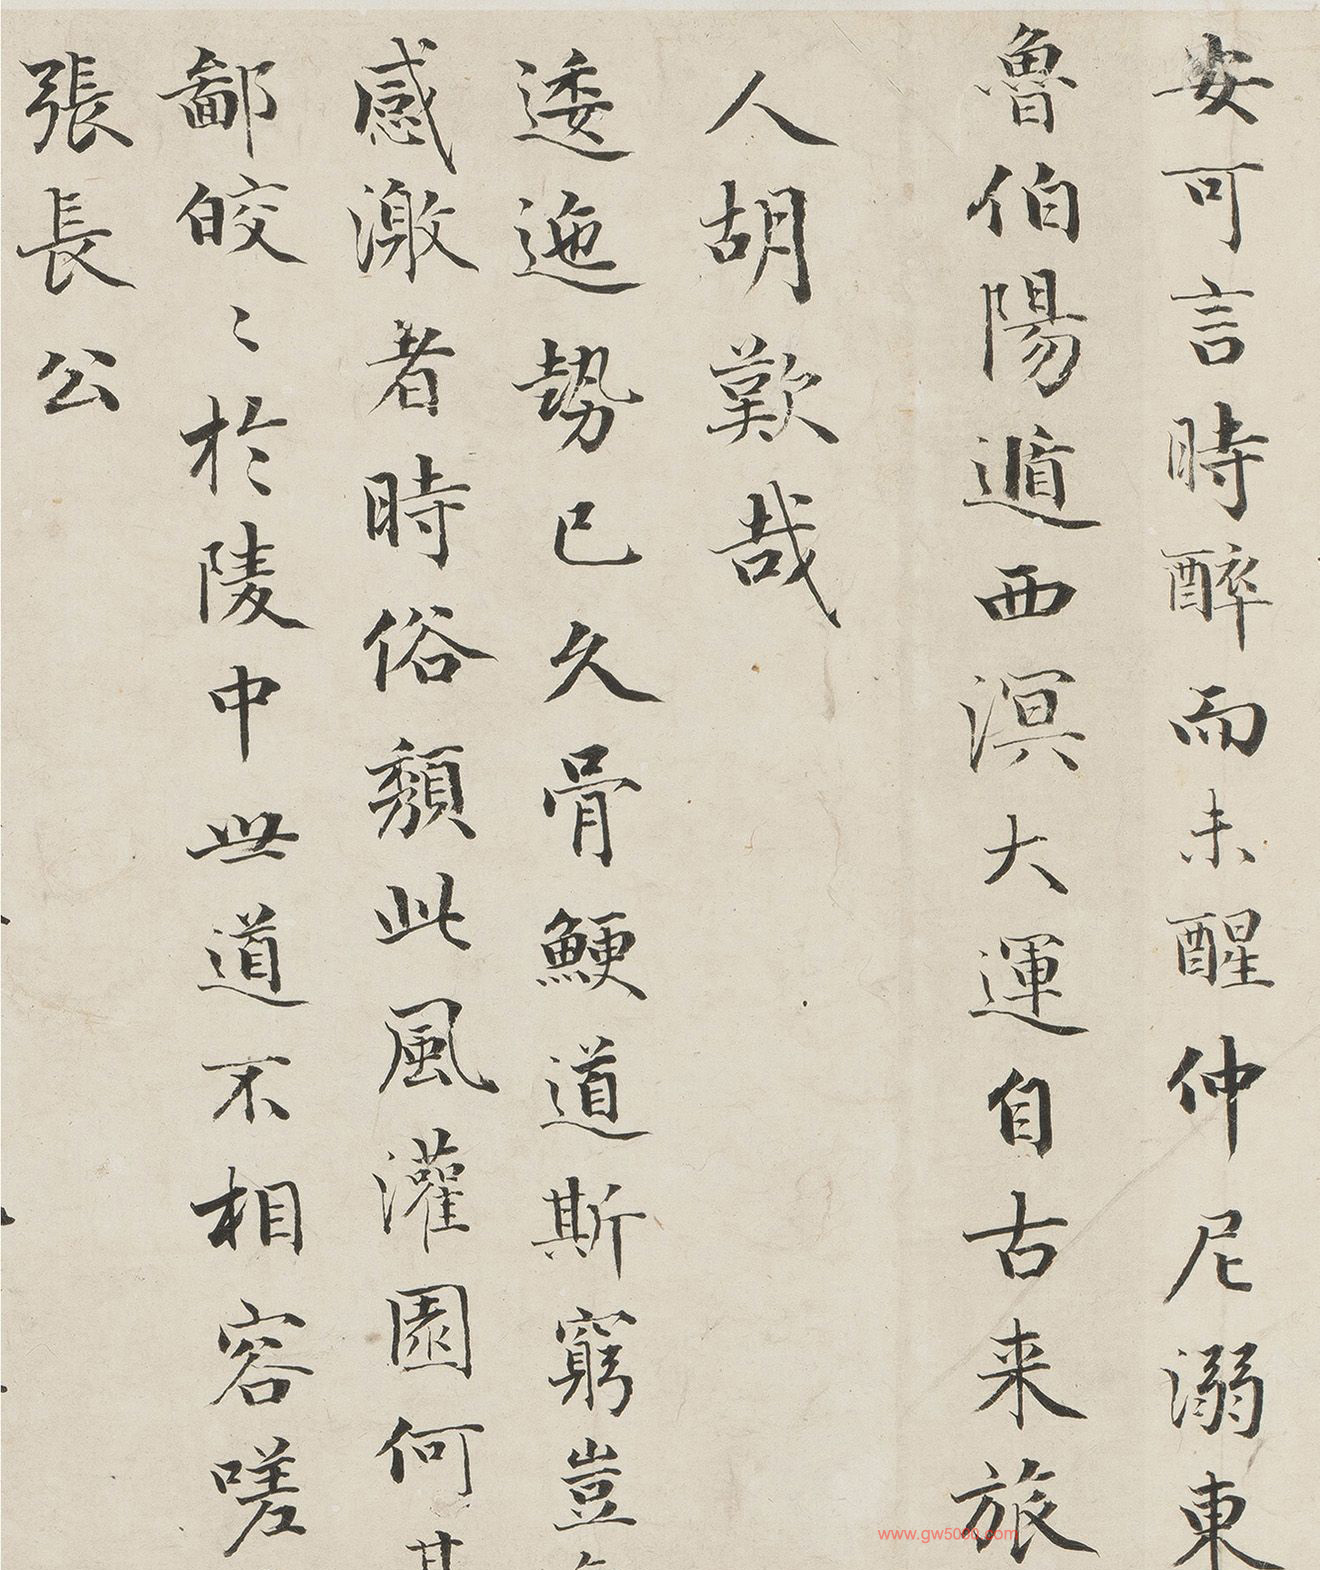 安可言時醉而未醒仲尼溺東
魯伯陽遁西溟大運自古来旅
人胡歎哉
逶迤勢已久骨鯁道斯窮豈
感激者時俗頽此風灌園何其
鄙皎〻於陵中世道不相容嗟
張長公
www.gw5000.com